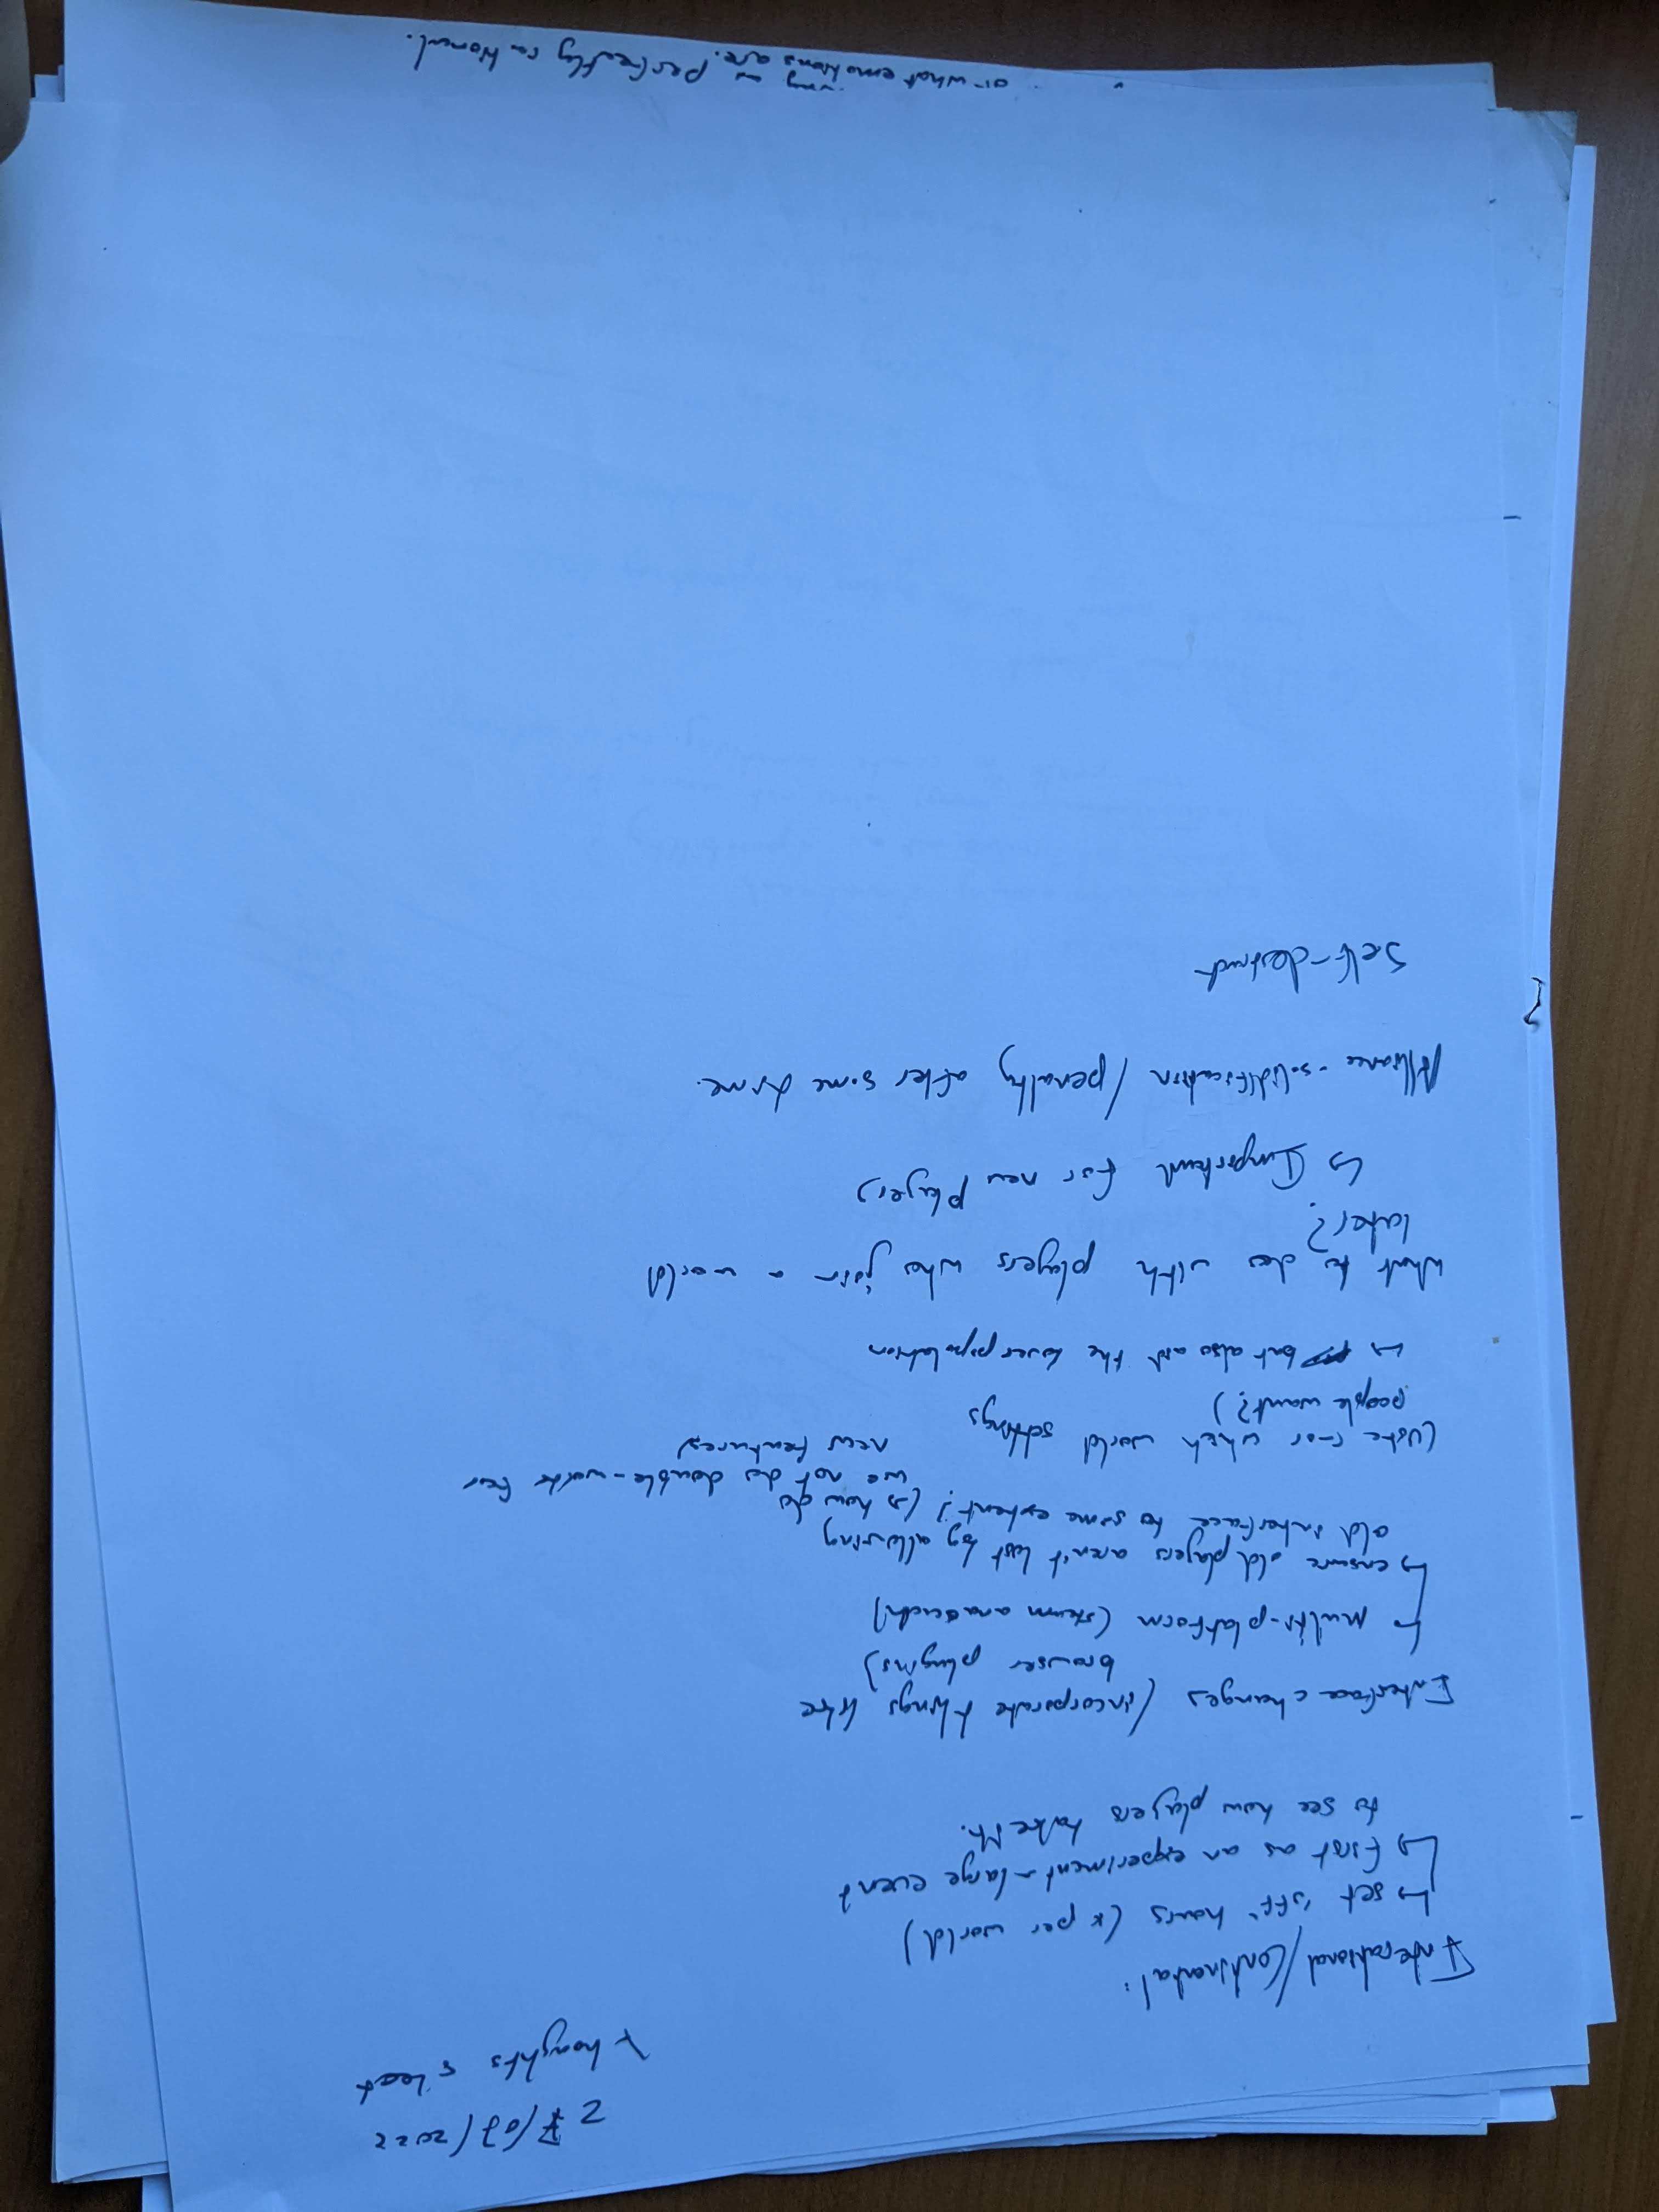 27/07/2022
thoughts
International/Continental:
↳ set "off" hours (* per world)
↳ First as an experiment - large event
to see how players take it.
Interface changes (incorporate things like
browser plugins)
↳ Multi-platform (steam and
↳ ensure old players aren't lost by allowing
old interface to some extent? (↳ how do
we not do double-work for
new features)
(Vote for which world settings
people want?)
↳ but also the lower population
What to do with players who join a world
later?
↳ Important for new players
Alliance-solidification / penalty after some time.
Self-destruct
or what emotions are. Perfectly rational.